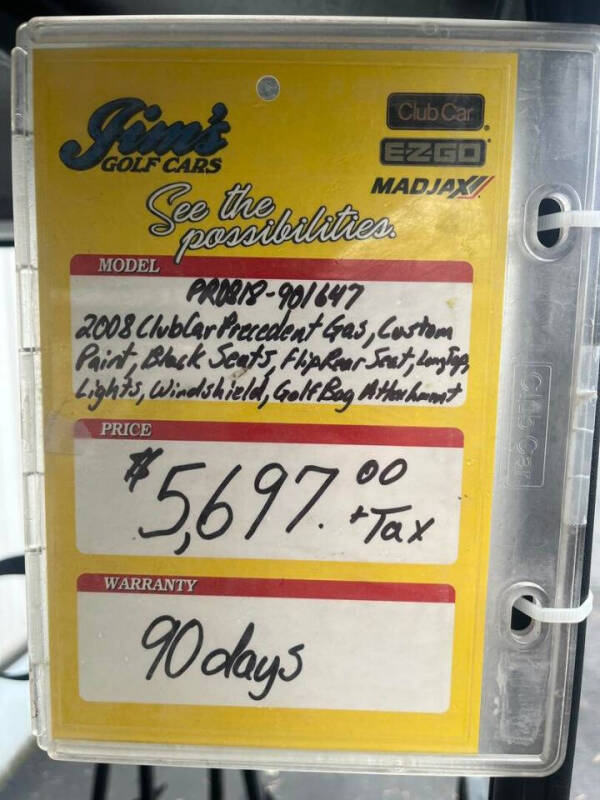 Jim's
GOLF CARS
Club Car
EZGO
MADJAX
See the
possibilities.
MODEL
PR0818-901647
2008 Club Car Precedent Gas, Custom
Paint, Black Seats, Flip Rear Seat, Long Top,
Lights, Windshield, Golf Bag Attachment
PRICE
$5,697.00
+Tax
WARRANTY
90 days
Club Car